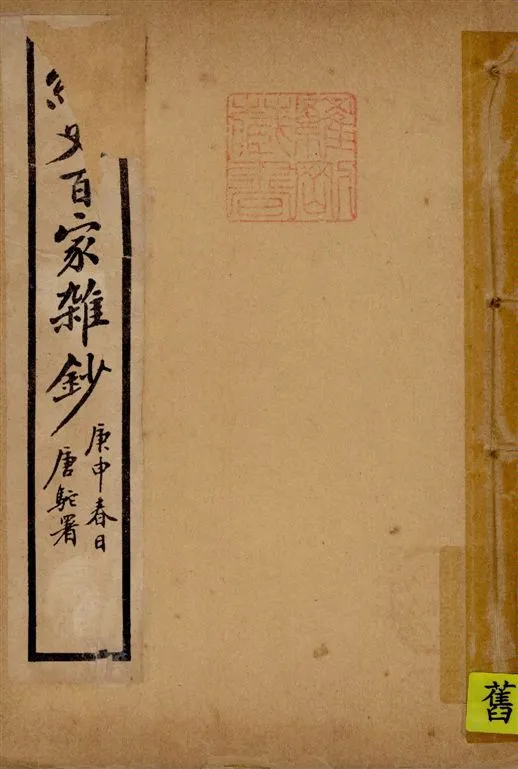 百家雜鈔
庚申春日
唐駝署
舊